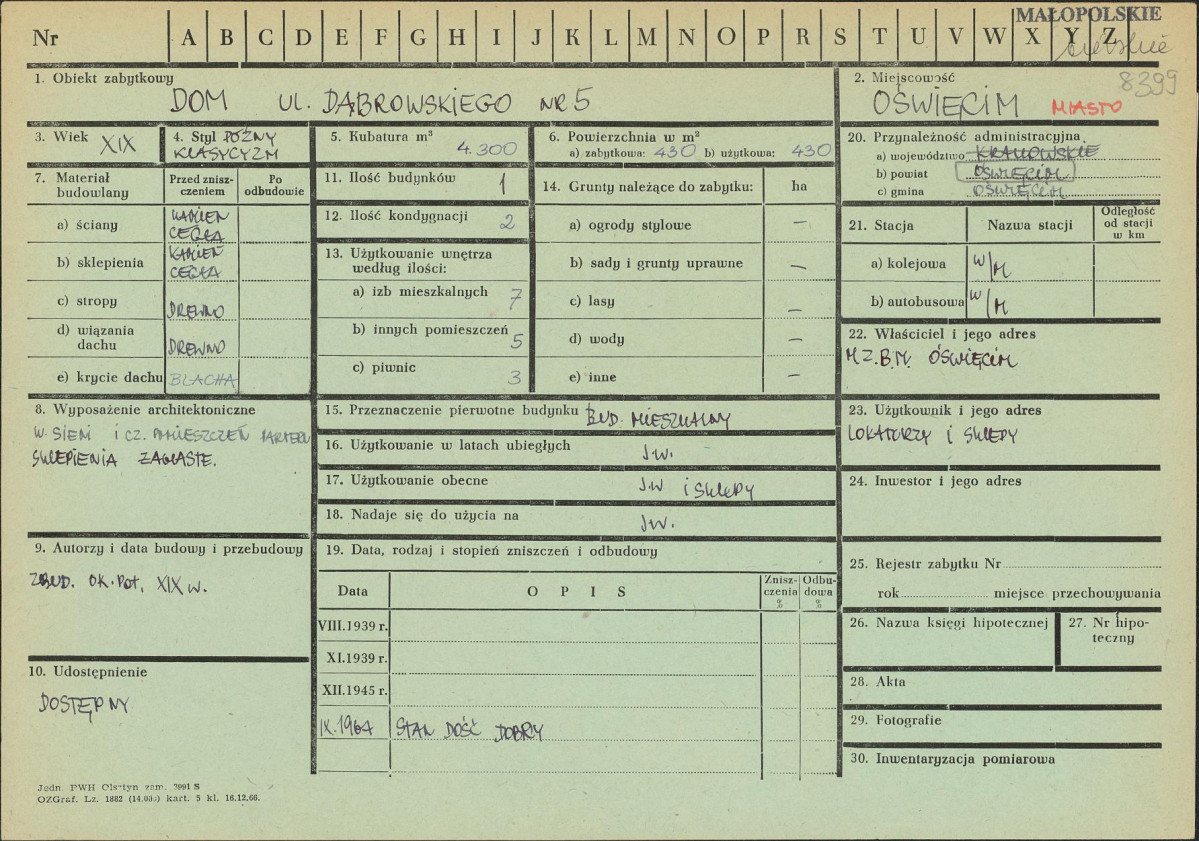 MAŁOPOLSKIE
Nr A B C D E F G H I J K L M N O P R S T U V W X Y Z
8399
1. Obiekt zabytkowy
DOM UL. DĄBROWSKIEGO NR 5
2. Miejscowość
OŚWIĘCIM MIASTO
3. Wiek XIX
4. Styl PÓŹNY
KLASYCYZM
5. Kubatura m³
4.300
6. Powierzchnia w m²
a) zabytkowa: 430 b) użytkowa: 430
20. Przynależność administracyjna
a) województwo KRAKOWSKIE
b) powiat OŚWIĘCIM
c) gmina OŚWIĘCIM
7. Materiał budowlany
Przed znisz-
czeniem
Po
odbudowie
a) ściany KAMIEŃ
CEGŁA
b) sklepienia KAMIEŃ
CEGŁA
c) stropy DREWNO
d) wiązania
dachu DREWNO
e) krycie dachu BLACHA
11. Ilość budynków 1
12. Ilość kondygnacji 2
13. Użytkowanie wnętrza
według ilości:
a) izb mieszkalnych 7
b) innych pomieszczeń 5
c) piwnic 3
14. Grunty należące do zabytku: ha
a) ogrody stylowe –
b) sady i grunty uprawne –
c) lasy –
d) wody –
e) inne –
21. Stacja Nazwa stacji Odległość
od stacji
w km
a) kolejowa W/M
b) autobusowa W/M
22. Właściciel i jego adres
M.Z.B.M. OŚWIĘCIM
8. Wyposażenie architektoniczne
W. SIENI I CZ. POMIESZCZEŃ PARTERU
SKLEPIENIA ŻAGLASTE.
15. Przeznaczenie pierwotne budynku BUD. MIESZKALNY
16. Użytkowanie w latach ubiegłych J.W.
17. Użytkowanie obecne J.W I SKLEPY
18. Nadaje się do użycia na J.W.
23. Użytkownik i jego adres
LOKATORZY I SKLEPY
24. Inwestor i jego adres
9. Autorzy i data budowy i przebudowy
ZBUD. OK. POŁ. XIX W.
19. Data, rodzaj i stopień zniszczeń i odbudowy
Data OPIS Znisz-
czenia
%
Odbu-
dowa
%
VIII.1939 r.
XI.1939 r.
XII.1945 r.
IX.1964 STAN DOŚĆ DOBRY
25. Rejestr zabytku Nr
rok miejsce przechowywania
26. Nazwa księgi hipotecznej
27. Nr hipo-
teczny
10. Udostępnienie
DOSTĘPNY
28. Akta
29. Fotografie
30. Inwentaryzacja pomiarowa
Jedn. PWH Olsztyn zam. 3991 S
OZGraf. Lz. 1882 (14.000) kart. 5 kl. 16.12.66.